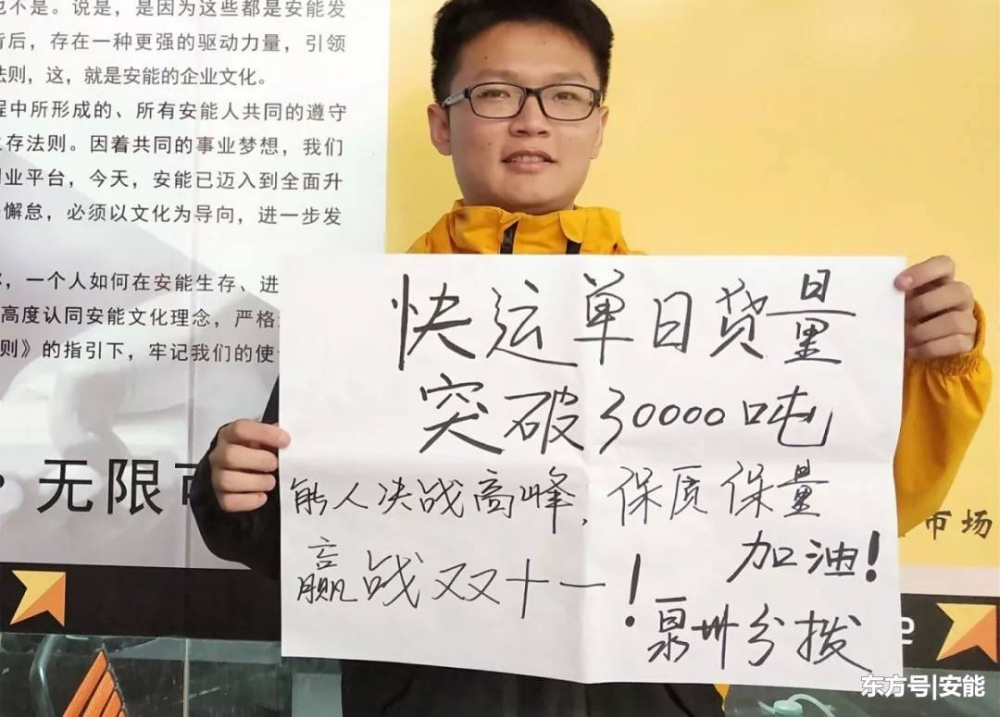 也不是。说是，是因为这些都是安能发
背后，存在一种更强的驱动力量，引领
法则，这，就是安能的企业文化。
程中所形成的、所有安能人共同的遵守
生存法则。因着共同的事业梦想，我们
创业平台，今天，安能已迈入到全面升
懈怠，必须以文化为导向，进一步发
，一个人如何在安能生存、进
高度认同安能文化理念，严格
则》的指引下，牢记我们的使
无限
快运单日货量
突破30000吨
能人决战高峰，保质保量
赢战双十一！加油！
泉州分拨
市场
东方号|安能